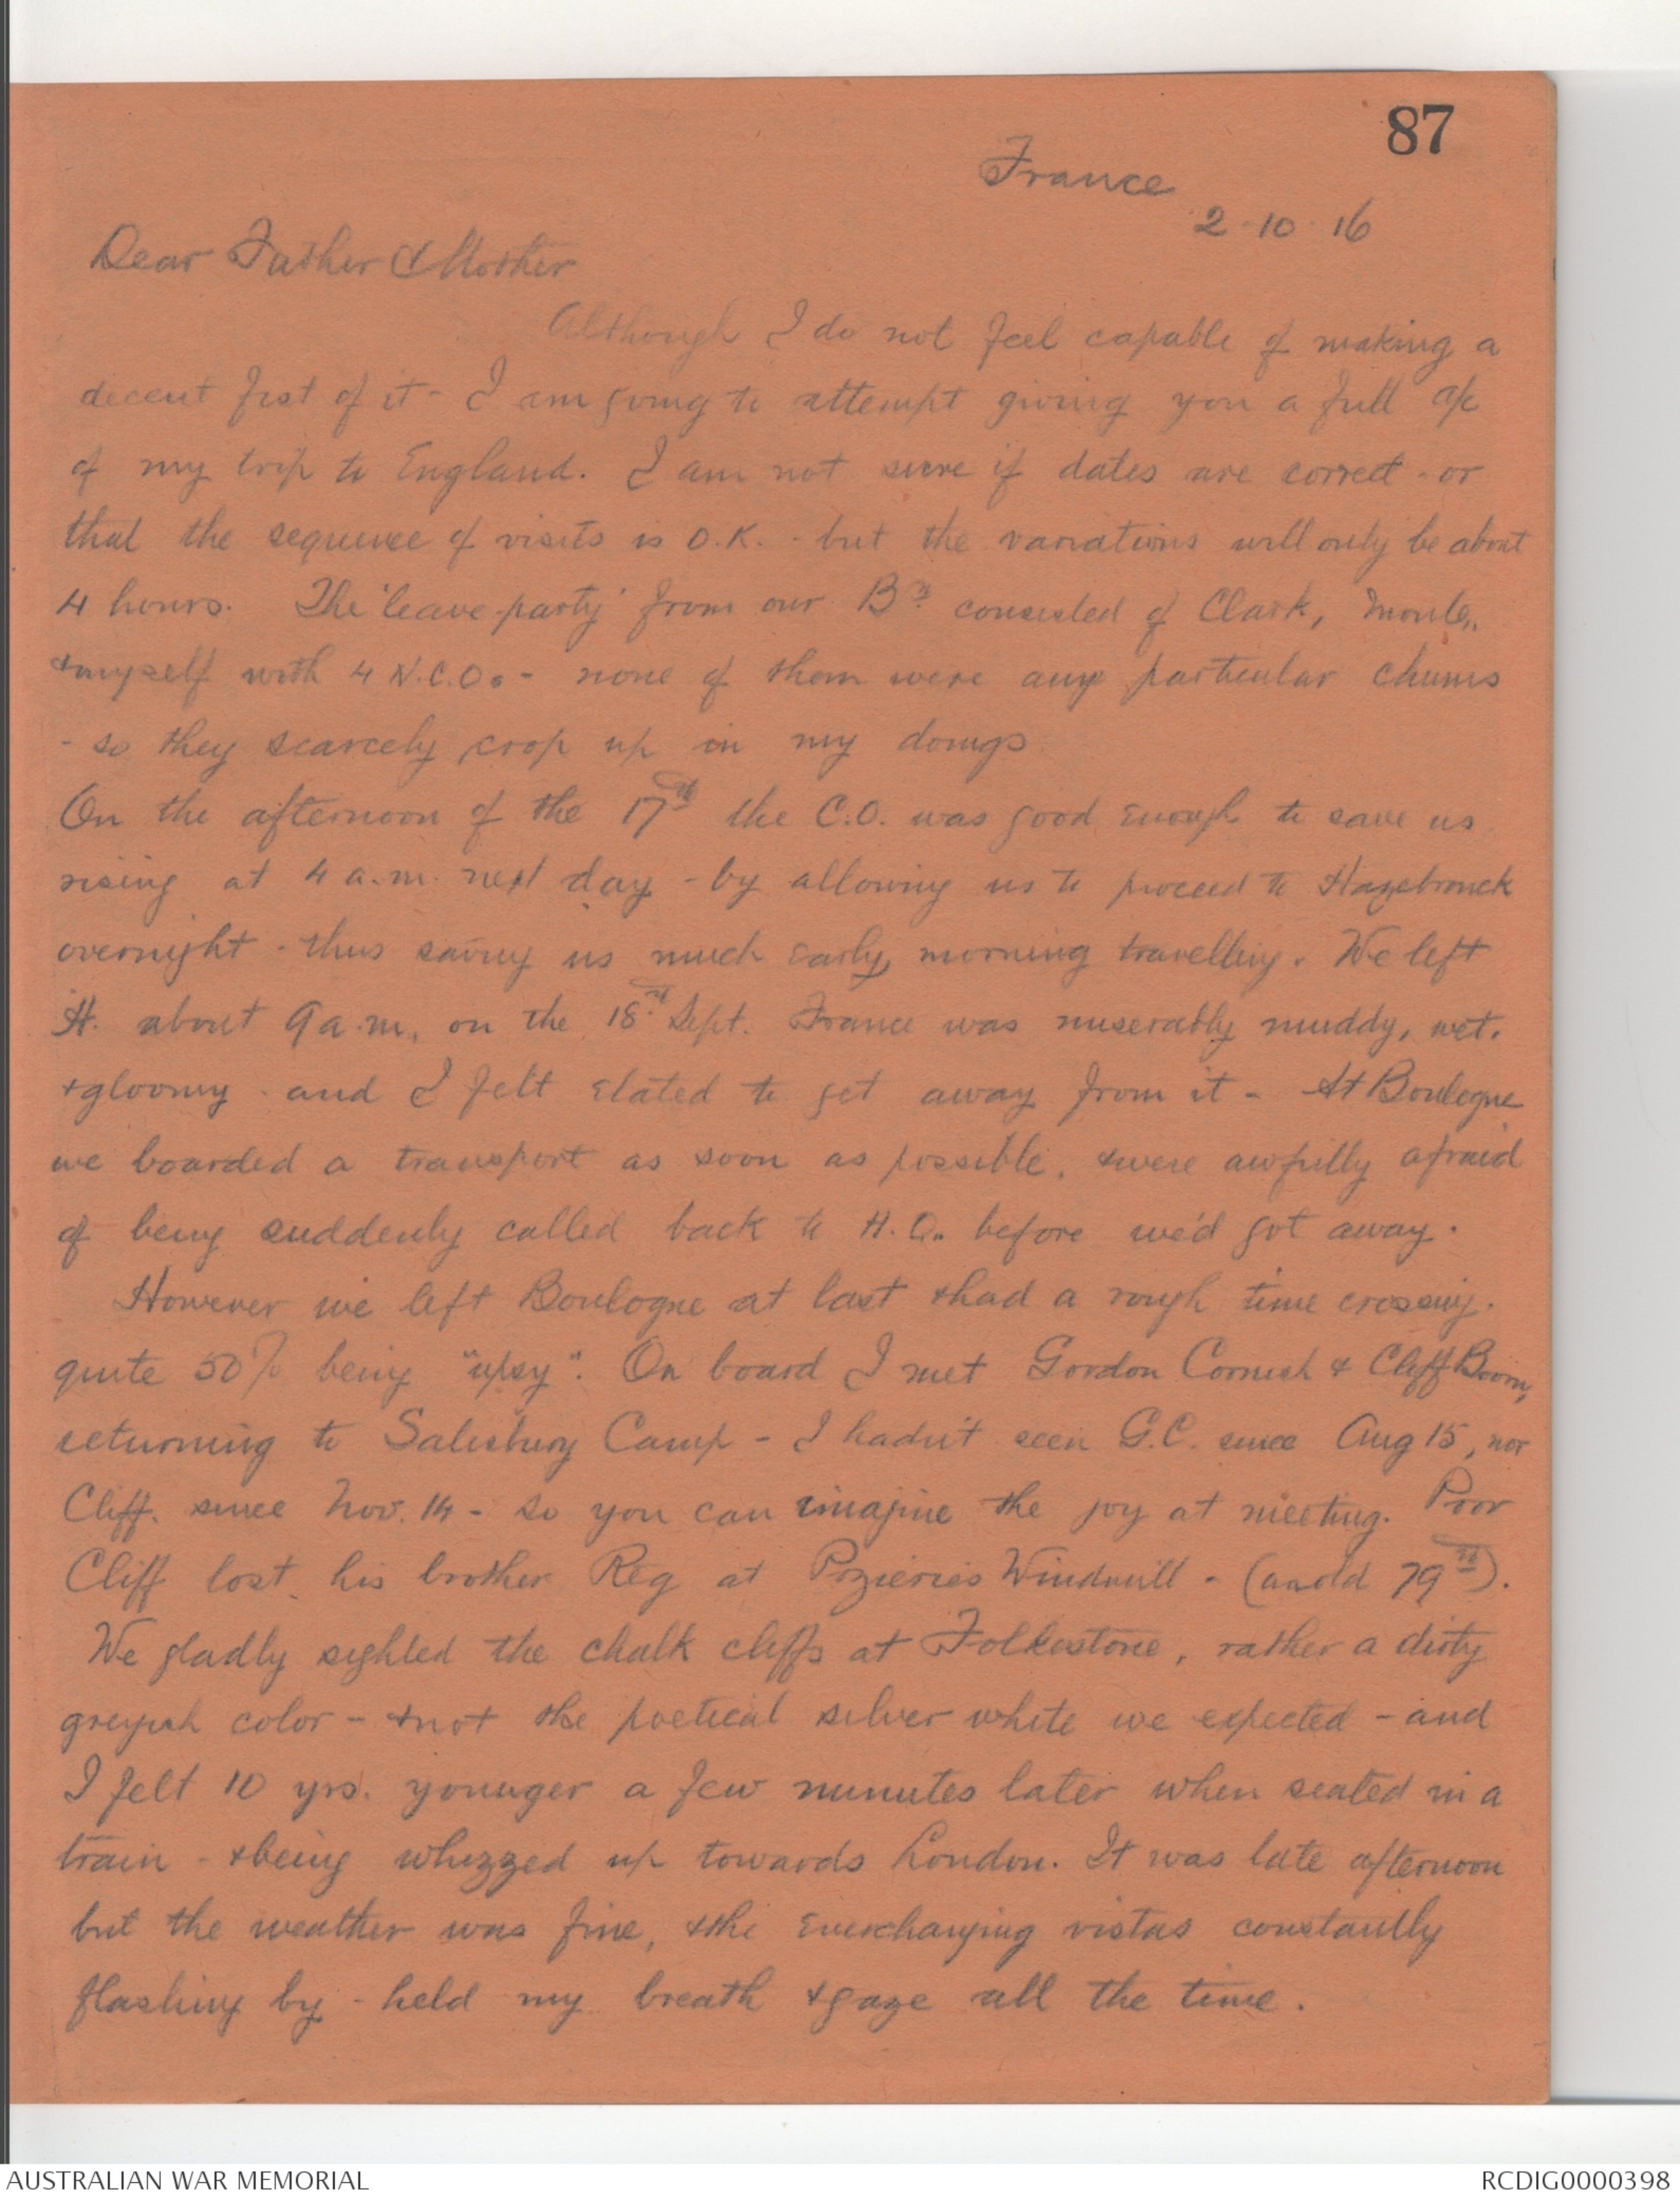 87
France
2.10.16
Dear Father & Mother
Although I do not feel capable of making a
decent fist of it - I am going to attempt giving you a full a/c
of my trip to England. I am not sure if dates are correct - or
that the sequence of visits is O.K. - but the variations will only be about
4 hours. The 'leave-party' from our Bn. consisted of Clark,
& myself with 4 N.C.Os - none of them were any particular chums
- so they scarcely crop up in my doings
On the afternoon of the 17th the C.O. was good enough to save us
rising at 4 a.m. next day - by allowing us to proceed to Hazebrouck
overnight - thus saving us much early morning travelling. We left
H. about 9 a.m. on the 18th Sept. France was miserably muddy, wet,
& gloomy - and I felt elated to get away from it - At Boulogne
we boarded a transport as soon as possible, & were awfully afraid
of being suddenly called back to H.Q. before we'd got away.
However we left Boulogne at last & had a rough time crossing.
quite 50% being "upsy". On board I met Gordon Cornish & Cliff
returning to Salisbury Camp - I hadn't seen G.C. since Aug 15, nor
Cliff. since Nov. 14 - so you can imagine the joy at meeting. Poor
Cliff lost his brother Reg at Pozieries Windmill - (an old 79th).
We gladly sighted the chalk cliffs at Folkestone, rather a dirty
greyish color - & not the poetical silver white we expected - and
I felt 10 yrs. younger a few minutes later when seated in a
train - & being whizzed up towards London. It was late afternoon
but the weather was fine, & the everchanging vistas constantly
flashing by - held my breath & gaze all the time.
AUSTRALIAN WAR MEMORIAL
RCDIG0000398